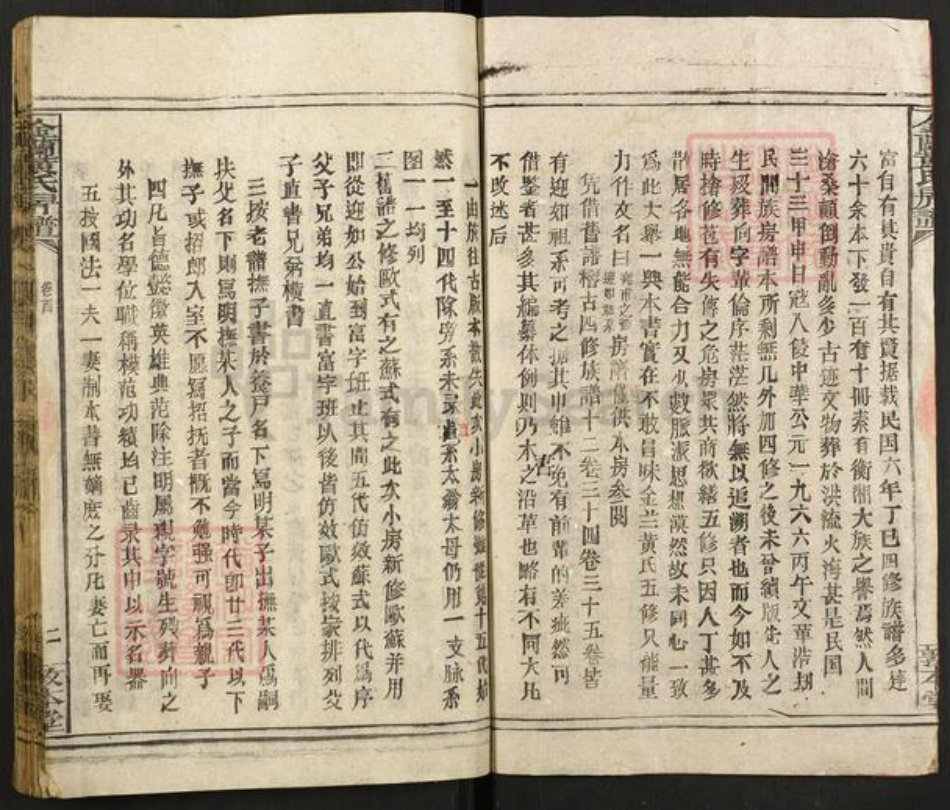 富自有其貴自有其賢据载民国六年丁巳四修族譜多達
六十余本下發一百有十冊素有衡湘大族之譽焉然人間
滄桑顛倒動亂多少古迹文物葬於洪流火海甚是民国
三十三甲申日寇入侵中華公元一九六六丙午文革浩劫
民間族房譜本所剩無几外加四修之後未曾續版先人之
生殁葬向字輩倫序茫茫然將無以追溯者也而今如不及
時搶修苞有失傳之危房眾共商欲續五修只因人丁甚多
散居各地無能合力又少數脈派思想漠然故未同心一致
為此大舉一興木書實在不敢昌昧金兰黄氏五修只能量
力作文名曰房譜僅供本房参閱
凭借昔譜榕古四修族譜十二卷三十四卷三十五卷皆
有迎如祖系可考之据其中雖不免有前輩的差疵然可
借鑒者甚多其編纂体例則乃木之沿革也略有不同大凡
不改述后
一由族往古版本散失此次小房新修僅僅幾十五代始
然一一至十四代除旁系未录嵩系太翁太母仍用一支脉系
图一一均列
二舊譜之修歐式有之蘇式有之此次小房新修歐蘇并用
即從迎如公始到富字班止其間五代仿效蘇式以代為序
父子兄弟均一直書富字班以後皆仿效歐式按家排列父
子直書兄弟橫書
三按老譜撫子書於養戸名下寫明某子出撫某人為嗣
扶父名下則寫明撫某人之子而當今時代卽廿三代以下
撫子或招郎入室不愿寫招抚者概不勉强可視為親子
四凡旨德懿徽英雄典范除注明屬獎字號生殁葬向之
外其功名學位職稱模范功績均已齒录其中以示名器
五按國法一夫一妻制木書無嫡庶之分凡妻亡而再娶
金蘭黄氏房譜
卷首
二
敦本堂